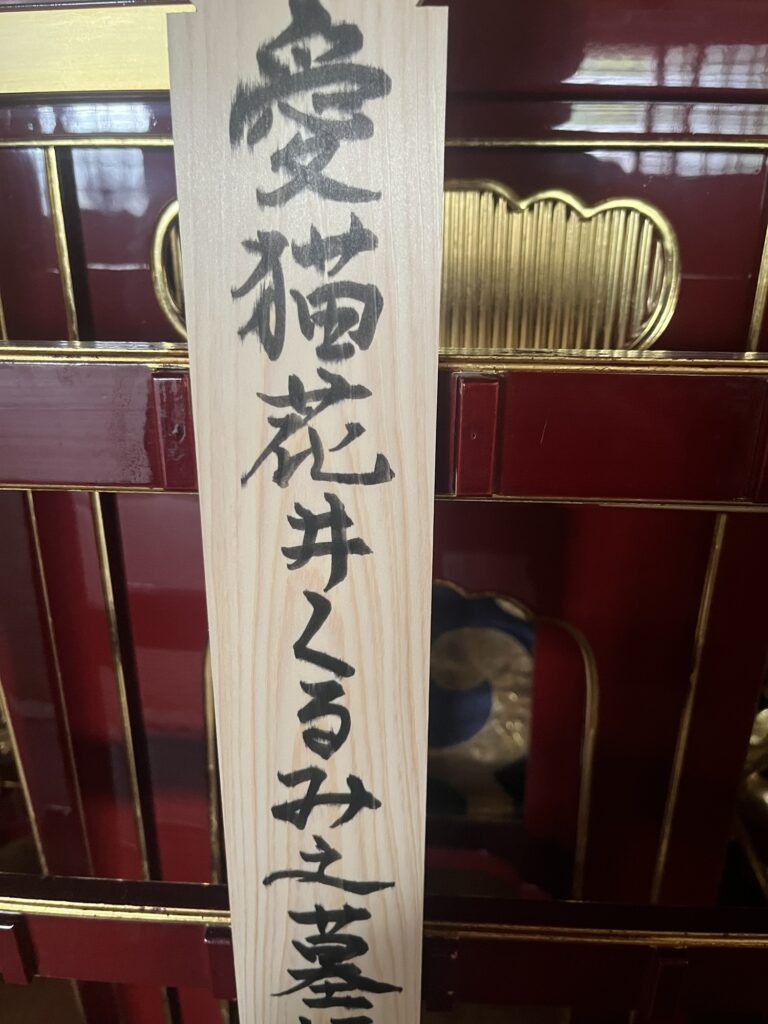 愛猫花井くるみ之墓